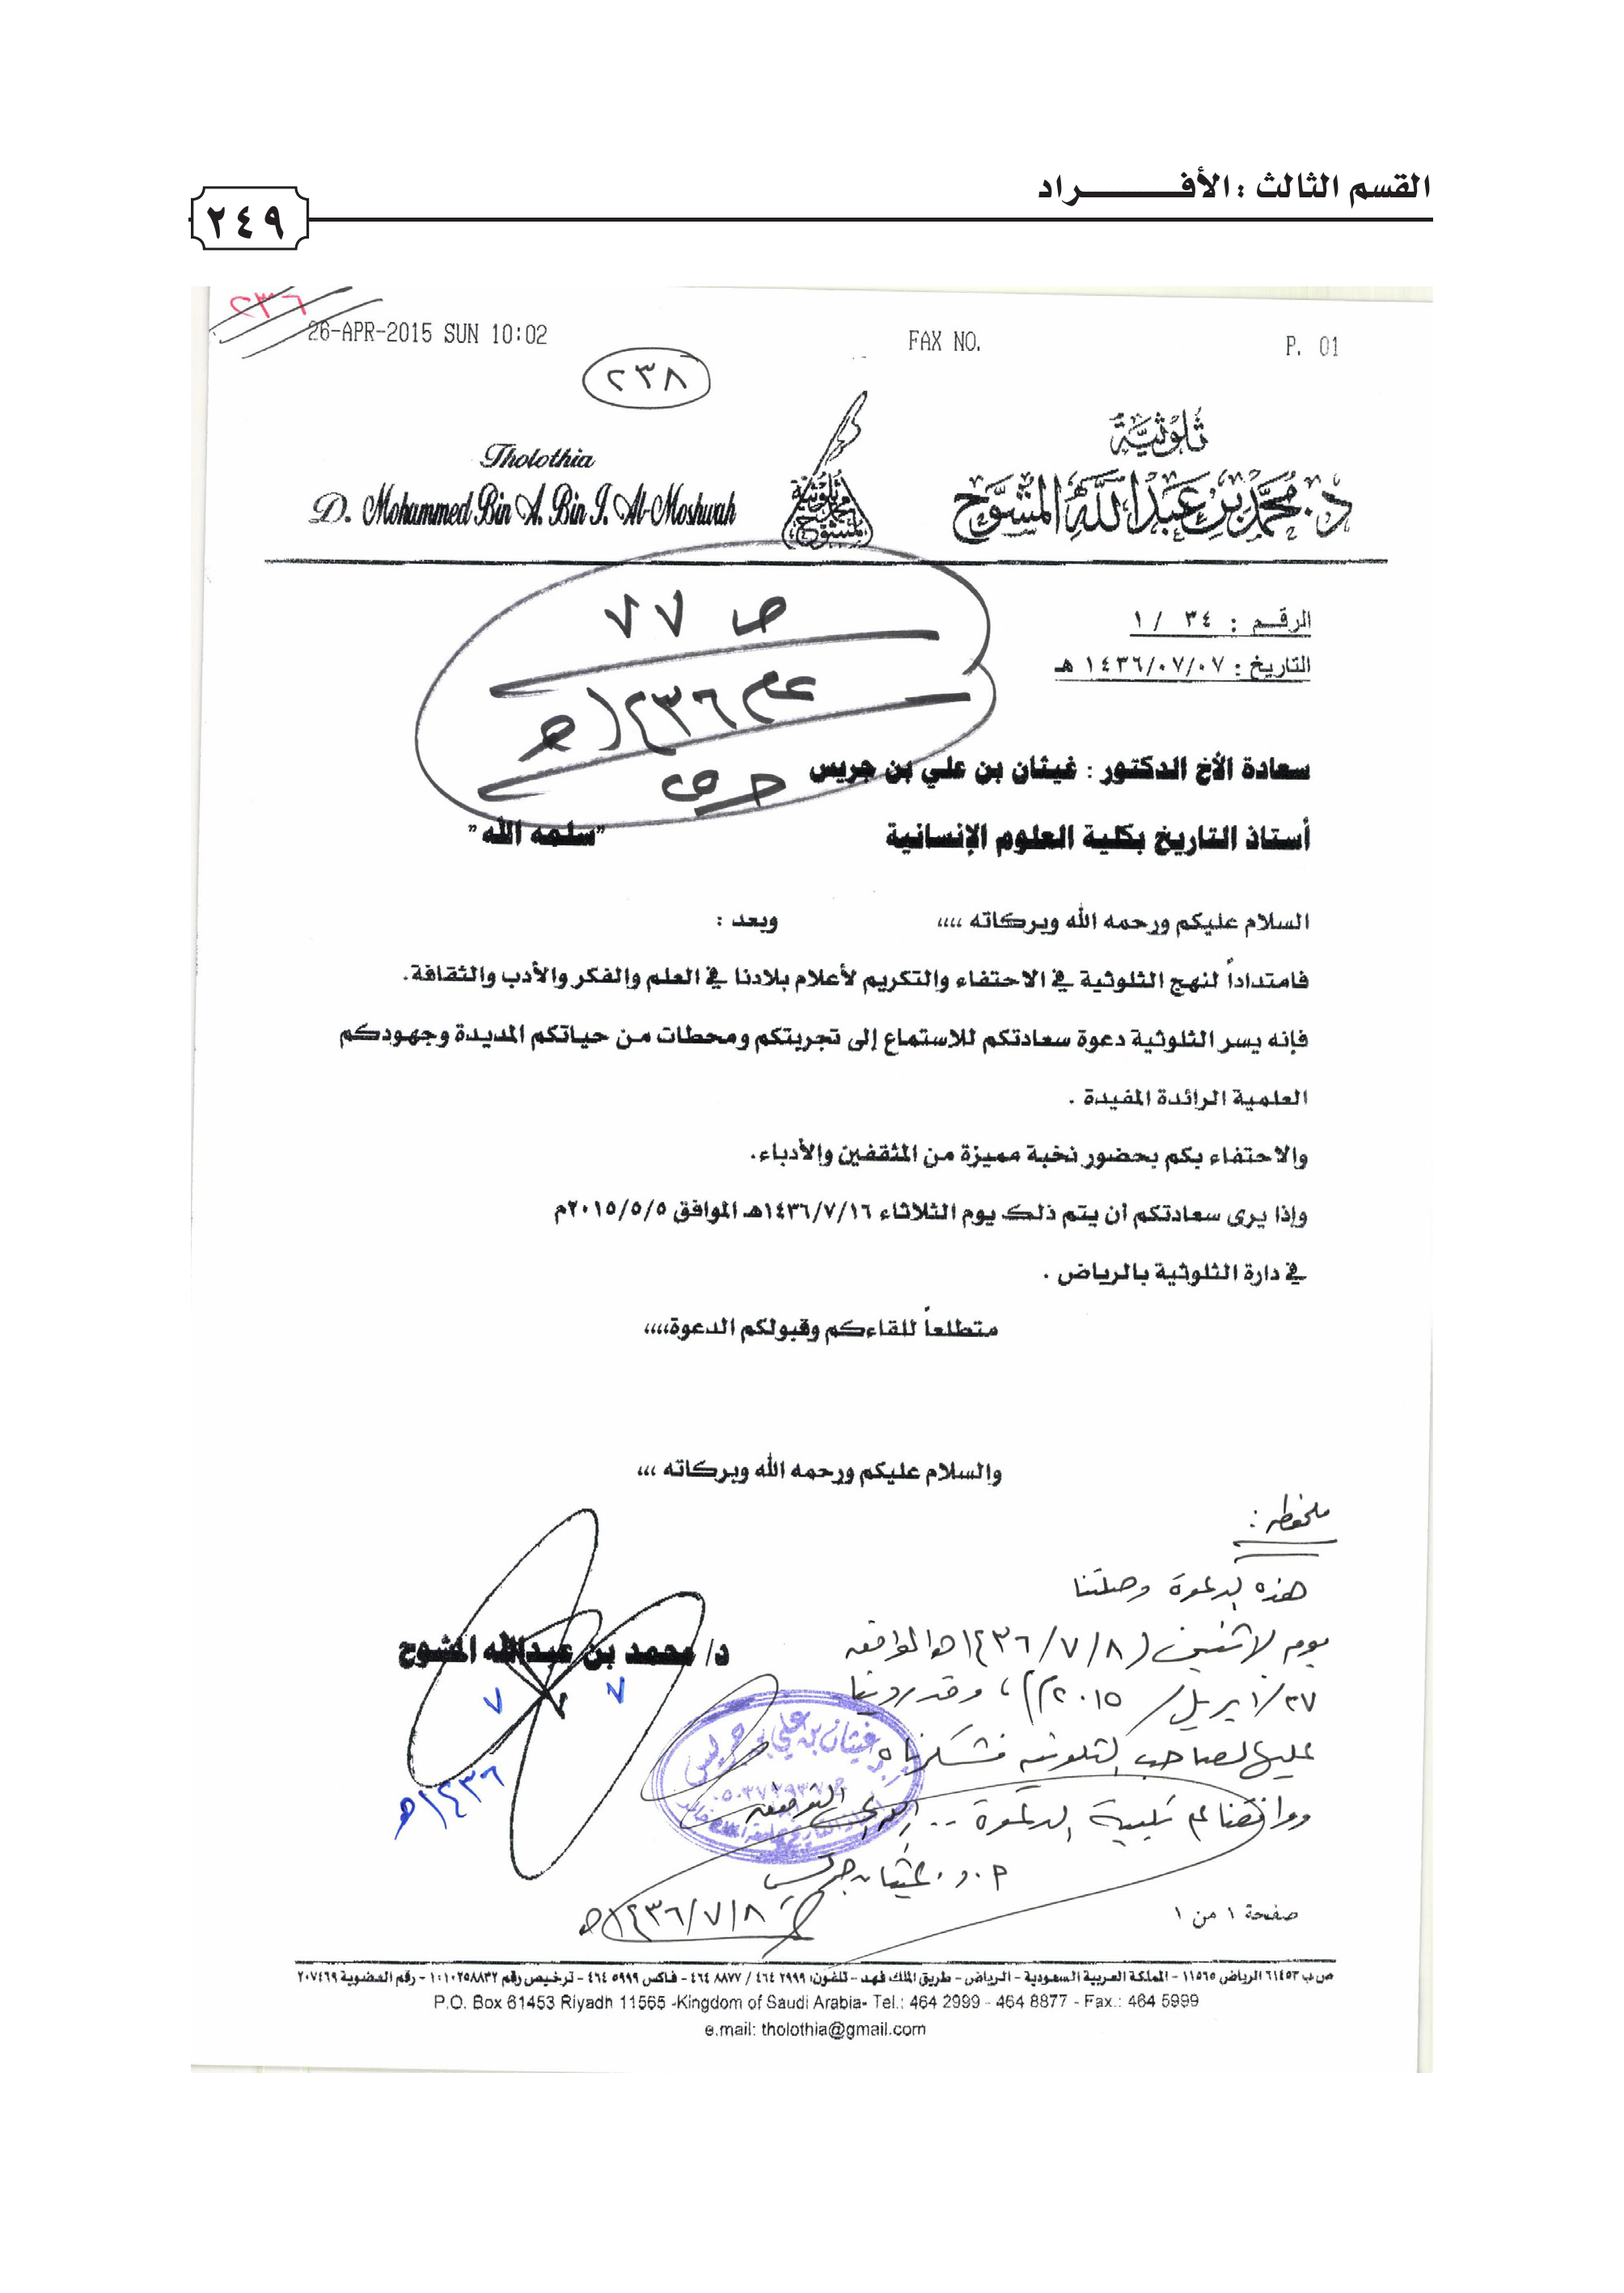 القسم الثالث : الأفـــــــراد
٢٤٩
٢٣٦
26-APR-2015 SUN 10:02
FAX NO.
P. 01
٢٣٨
ثلوثية
د. محمد بن عبدالله المشوح
Tholothia
D. Mohammed Bin A. Bin I. Al-Moshwah
ثلوثية محمد المشوح
الرقـم : ٣٤ / ١
التاريخ : ١٤٣٦/٠٧/٠٧ هـ
ص ٧٧
عام ١٤٣٦هـ
سعادة الأخ الدكتور : غيثان بن علي بن جريس
أستاذ التاريخ بكلية العلوم الإنسانية "سلمه الله"
السلام عليكم ورحمه الله وبركاته ،،،، وبعد :
فامتداداً لنهج الثلوثية في الاحتفاء والتكريم لأعلام بلادنا في العلم والفكر والأدب والثقافة.
فإنه يسر الثلوثية دعوة سعادتكم للاستماع إلى تجربتكم ومحطات من حياتكم المديدة وجهودكم
العلمية الرائدة المفيدة .
والاحتفاء بكم بحضور نخبة مميزة من المثقفين والأدباء.
وإذا يرى سعادتكم أن يتم ذلك يوم الثلاثاء ١٤٣٦/٧/١٦هـ الموافق ٢٠١٥/٥/٥م
في دارة الثلوثية بالرياض .
متطلعاً للقاءكم وقبولكم الدعوة،،،،
والسلام عليكم ورحمه الله وبركاته ،،،
د/ محمد بن عبدالله المشوح
٧ ٧ ٧
١٤٣٦هـ
ملحوظة :
هذه الدعوة وصلتنا
يوم الاثنين (١٤٣٦/٧/٨هـ الموافق
٢٧/ ابريل/ ٢٠١٥م) ، وقد رددنا
عليها لصاحب الثلوثية فشكرناه
ووافقنا على تلبية الدعوة .. والله ولي التوفيق
أ. د. غيثان بن جريس
١٤٣٦/٧/٨هـ
صفحة ١ من ١
ص ب ٦١٤٥٣ الرياض ١١٥٦٥ - المملكة العربية السعودية - الرياض - طريق الملك فهد - تلفون: ٢٩٩٩ ٤٦٤ / ٨٨٧٧ ٤٦٤ - فاكس ٥٩٩٩ ٤٦٤ - ترخيص رقم ١٠١٠٢٥٨٨٣٢ - رقم العضوية ٢٠٧٤٦٩
P.O. Box 61453 Riyadh 11565 -Kingdom of Saudi Arabia- Tel.: 464 2999 - 464 8877 - Fax.: 464 5999
e.mail: tholothia@gmail.com